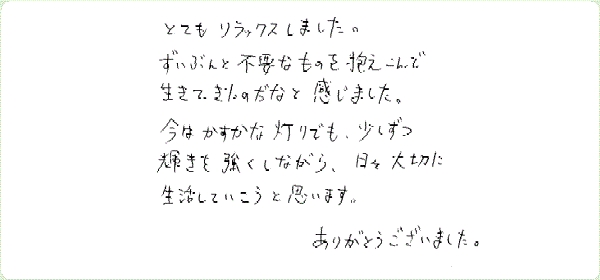 とてもリラックスしました。
ずいぶんと不要なものを抱えこんで
生きてきたのだなと感じました。
今はかすかな灯りでも、少しずつ
輝きを強くしながら、日々大切に
生活していこうと思います。
ありがとうございました。